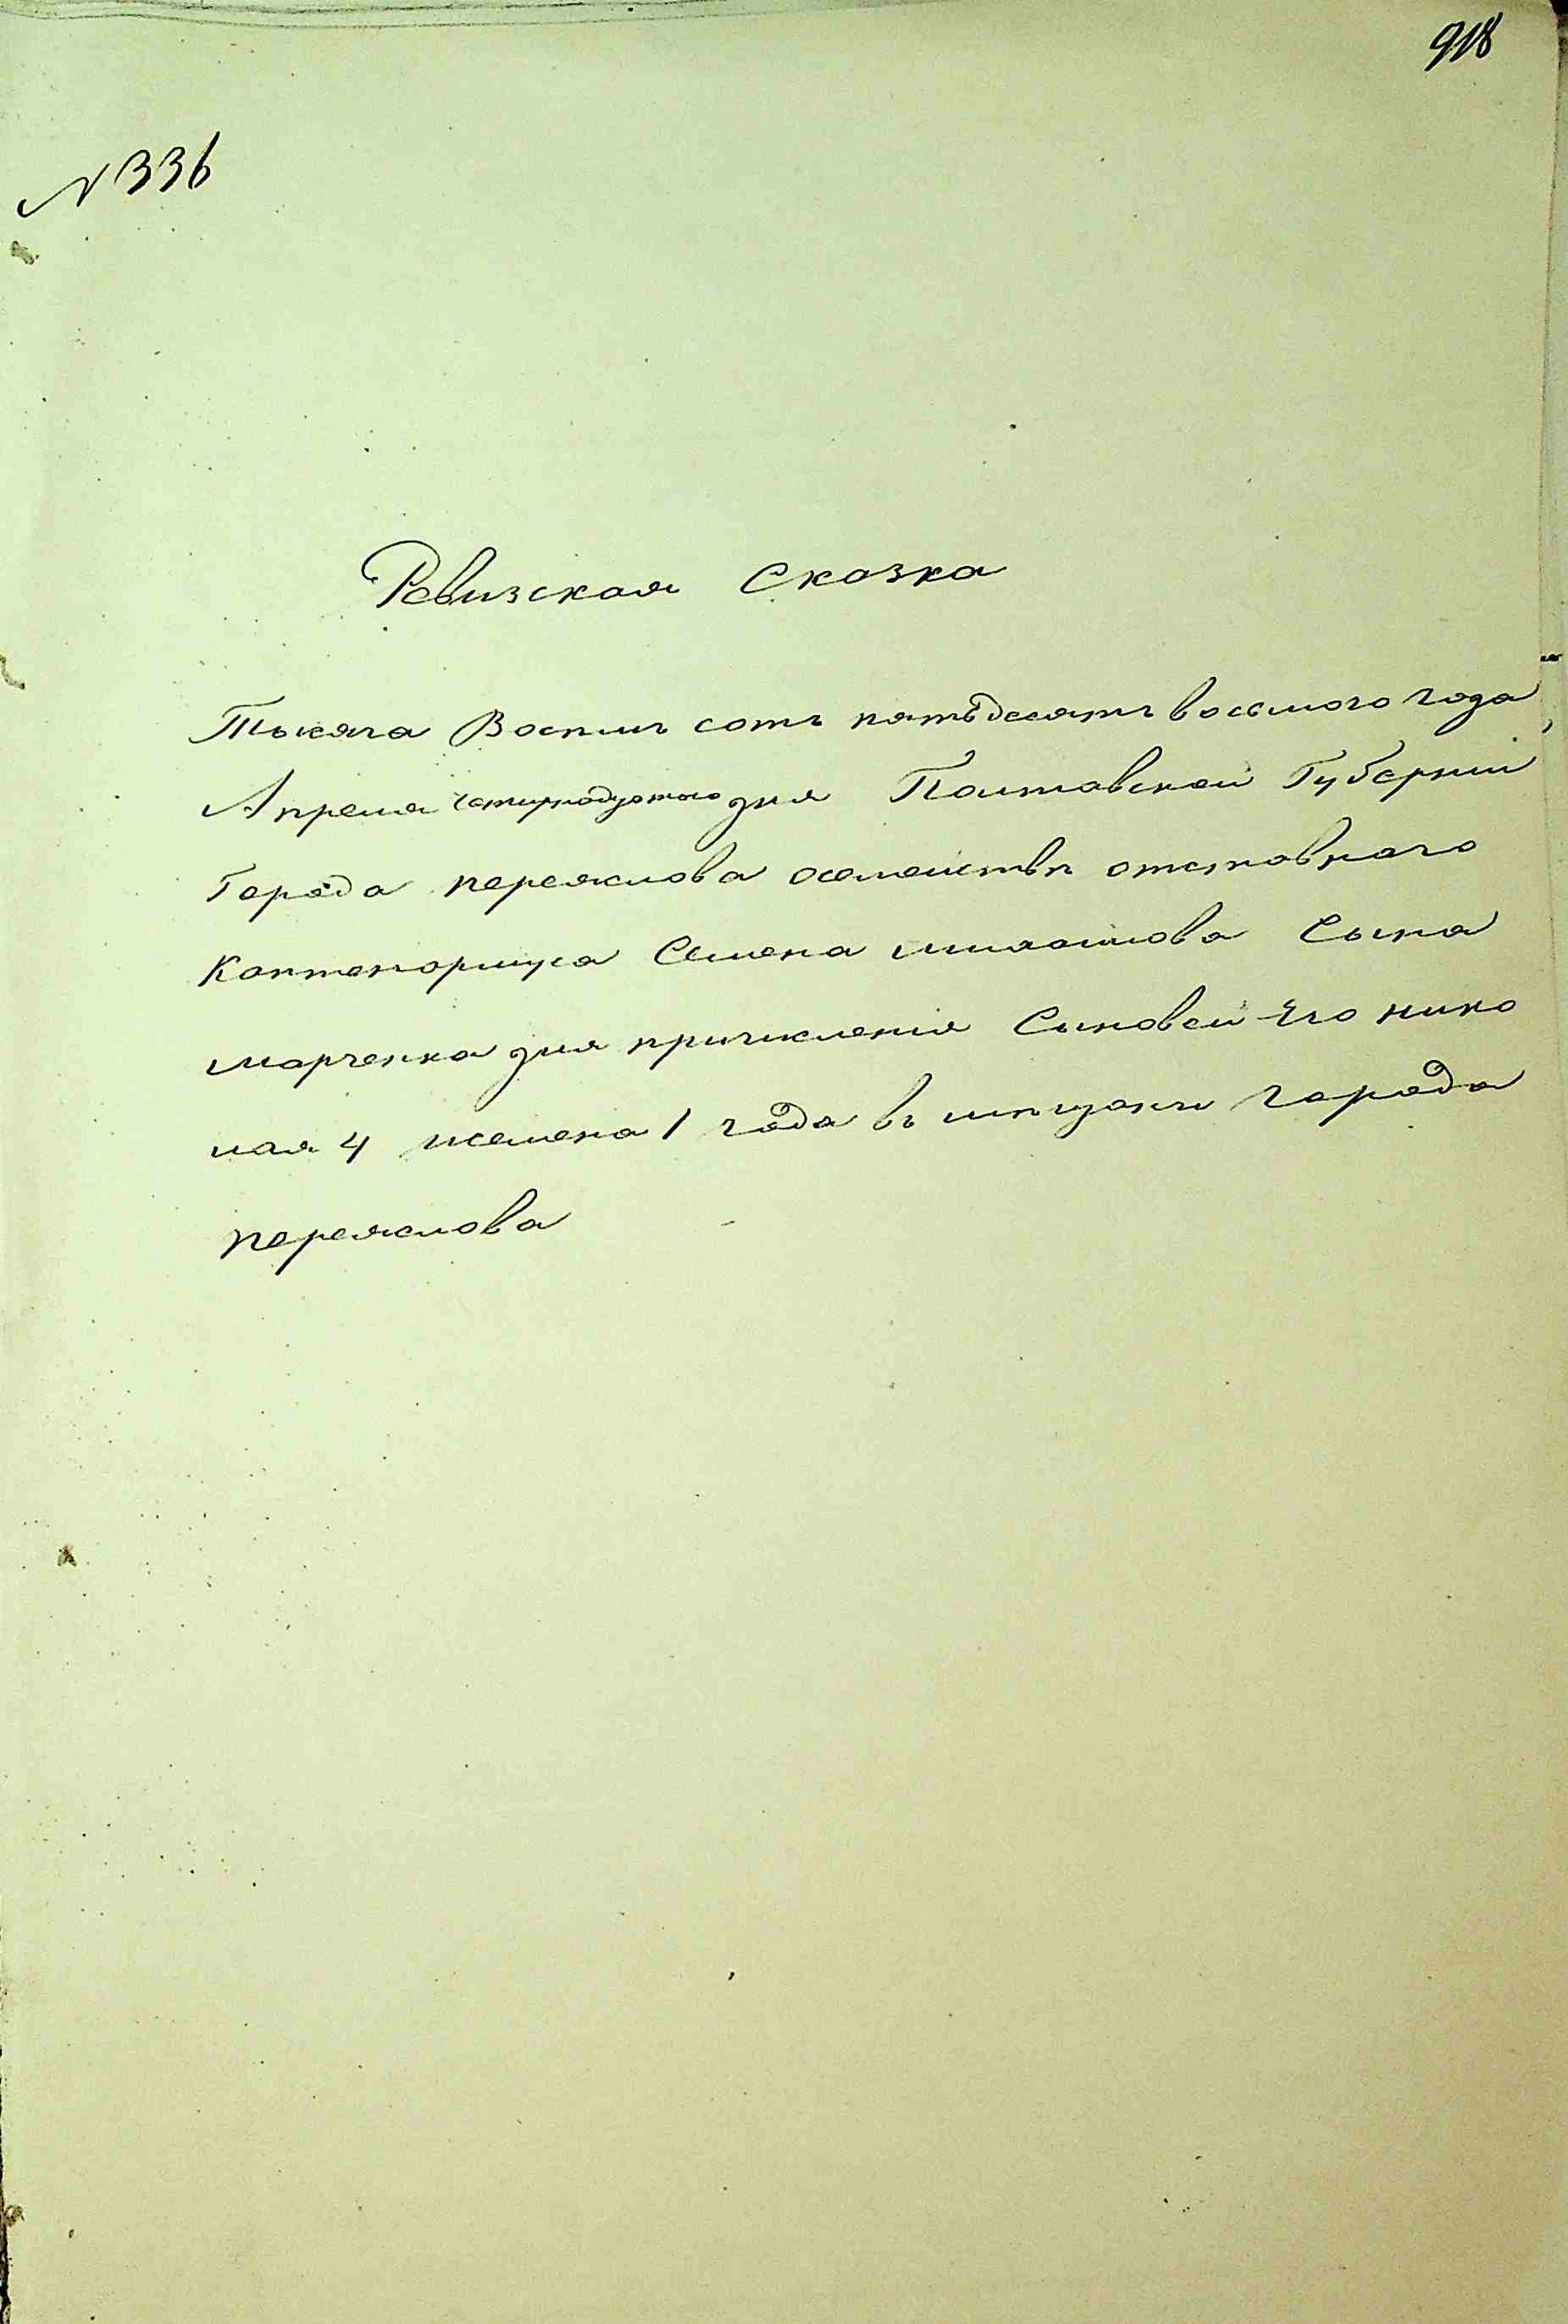 918
N 336
Ревизская Сказка
Тысяча Восѣмъ сотъ пятьдесятъ восьмого года
Апреля четирнадцатого дня Полтавской Губерніи
Города переяслова осемействѣ отставного
Каптенармуса Семена михайлова Сына
марченка для причисленія Сыновей Его нико
лая 4 исемена 1 года въ мѣщани города
переяслова